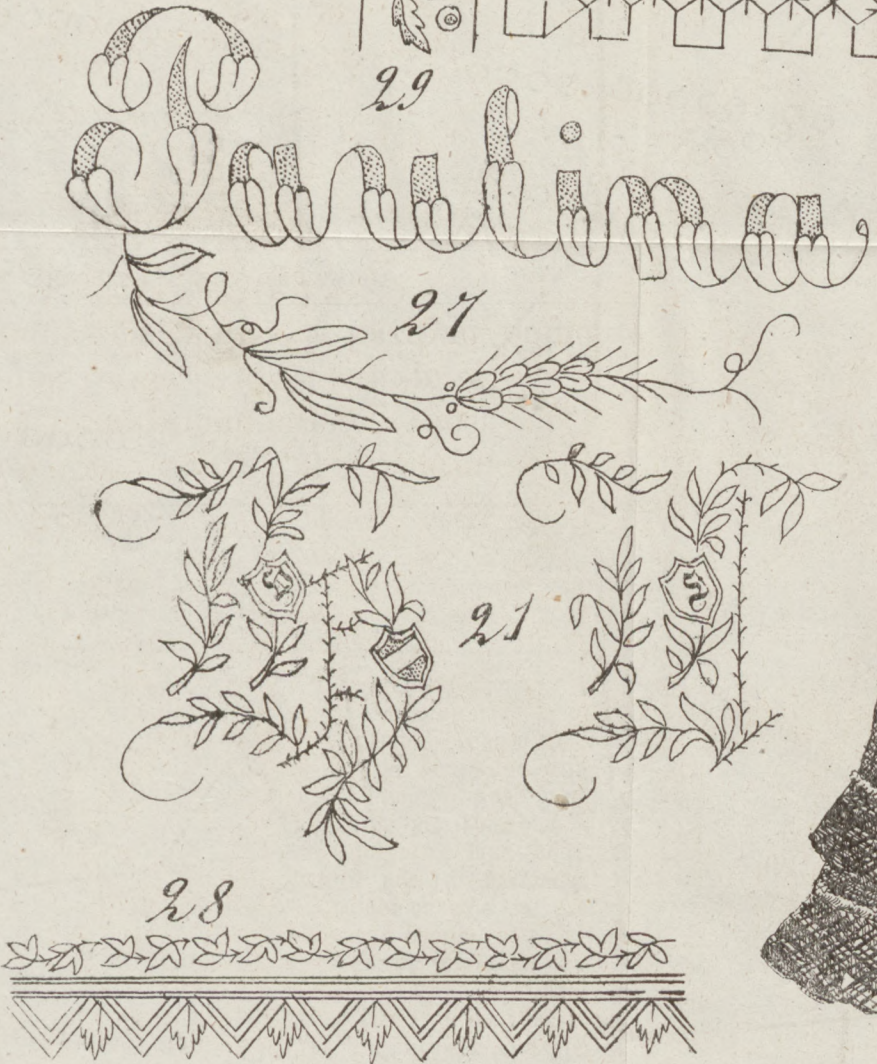 29
Paulina
27
21
28